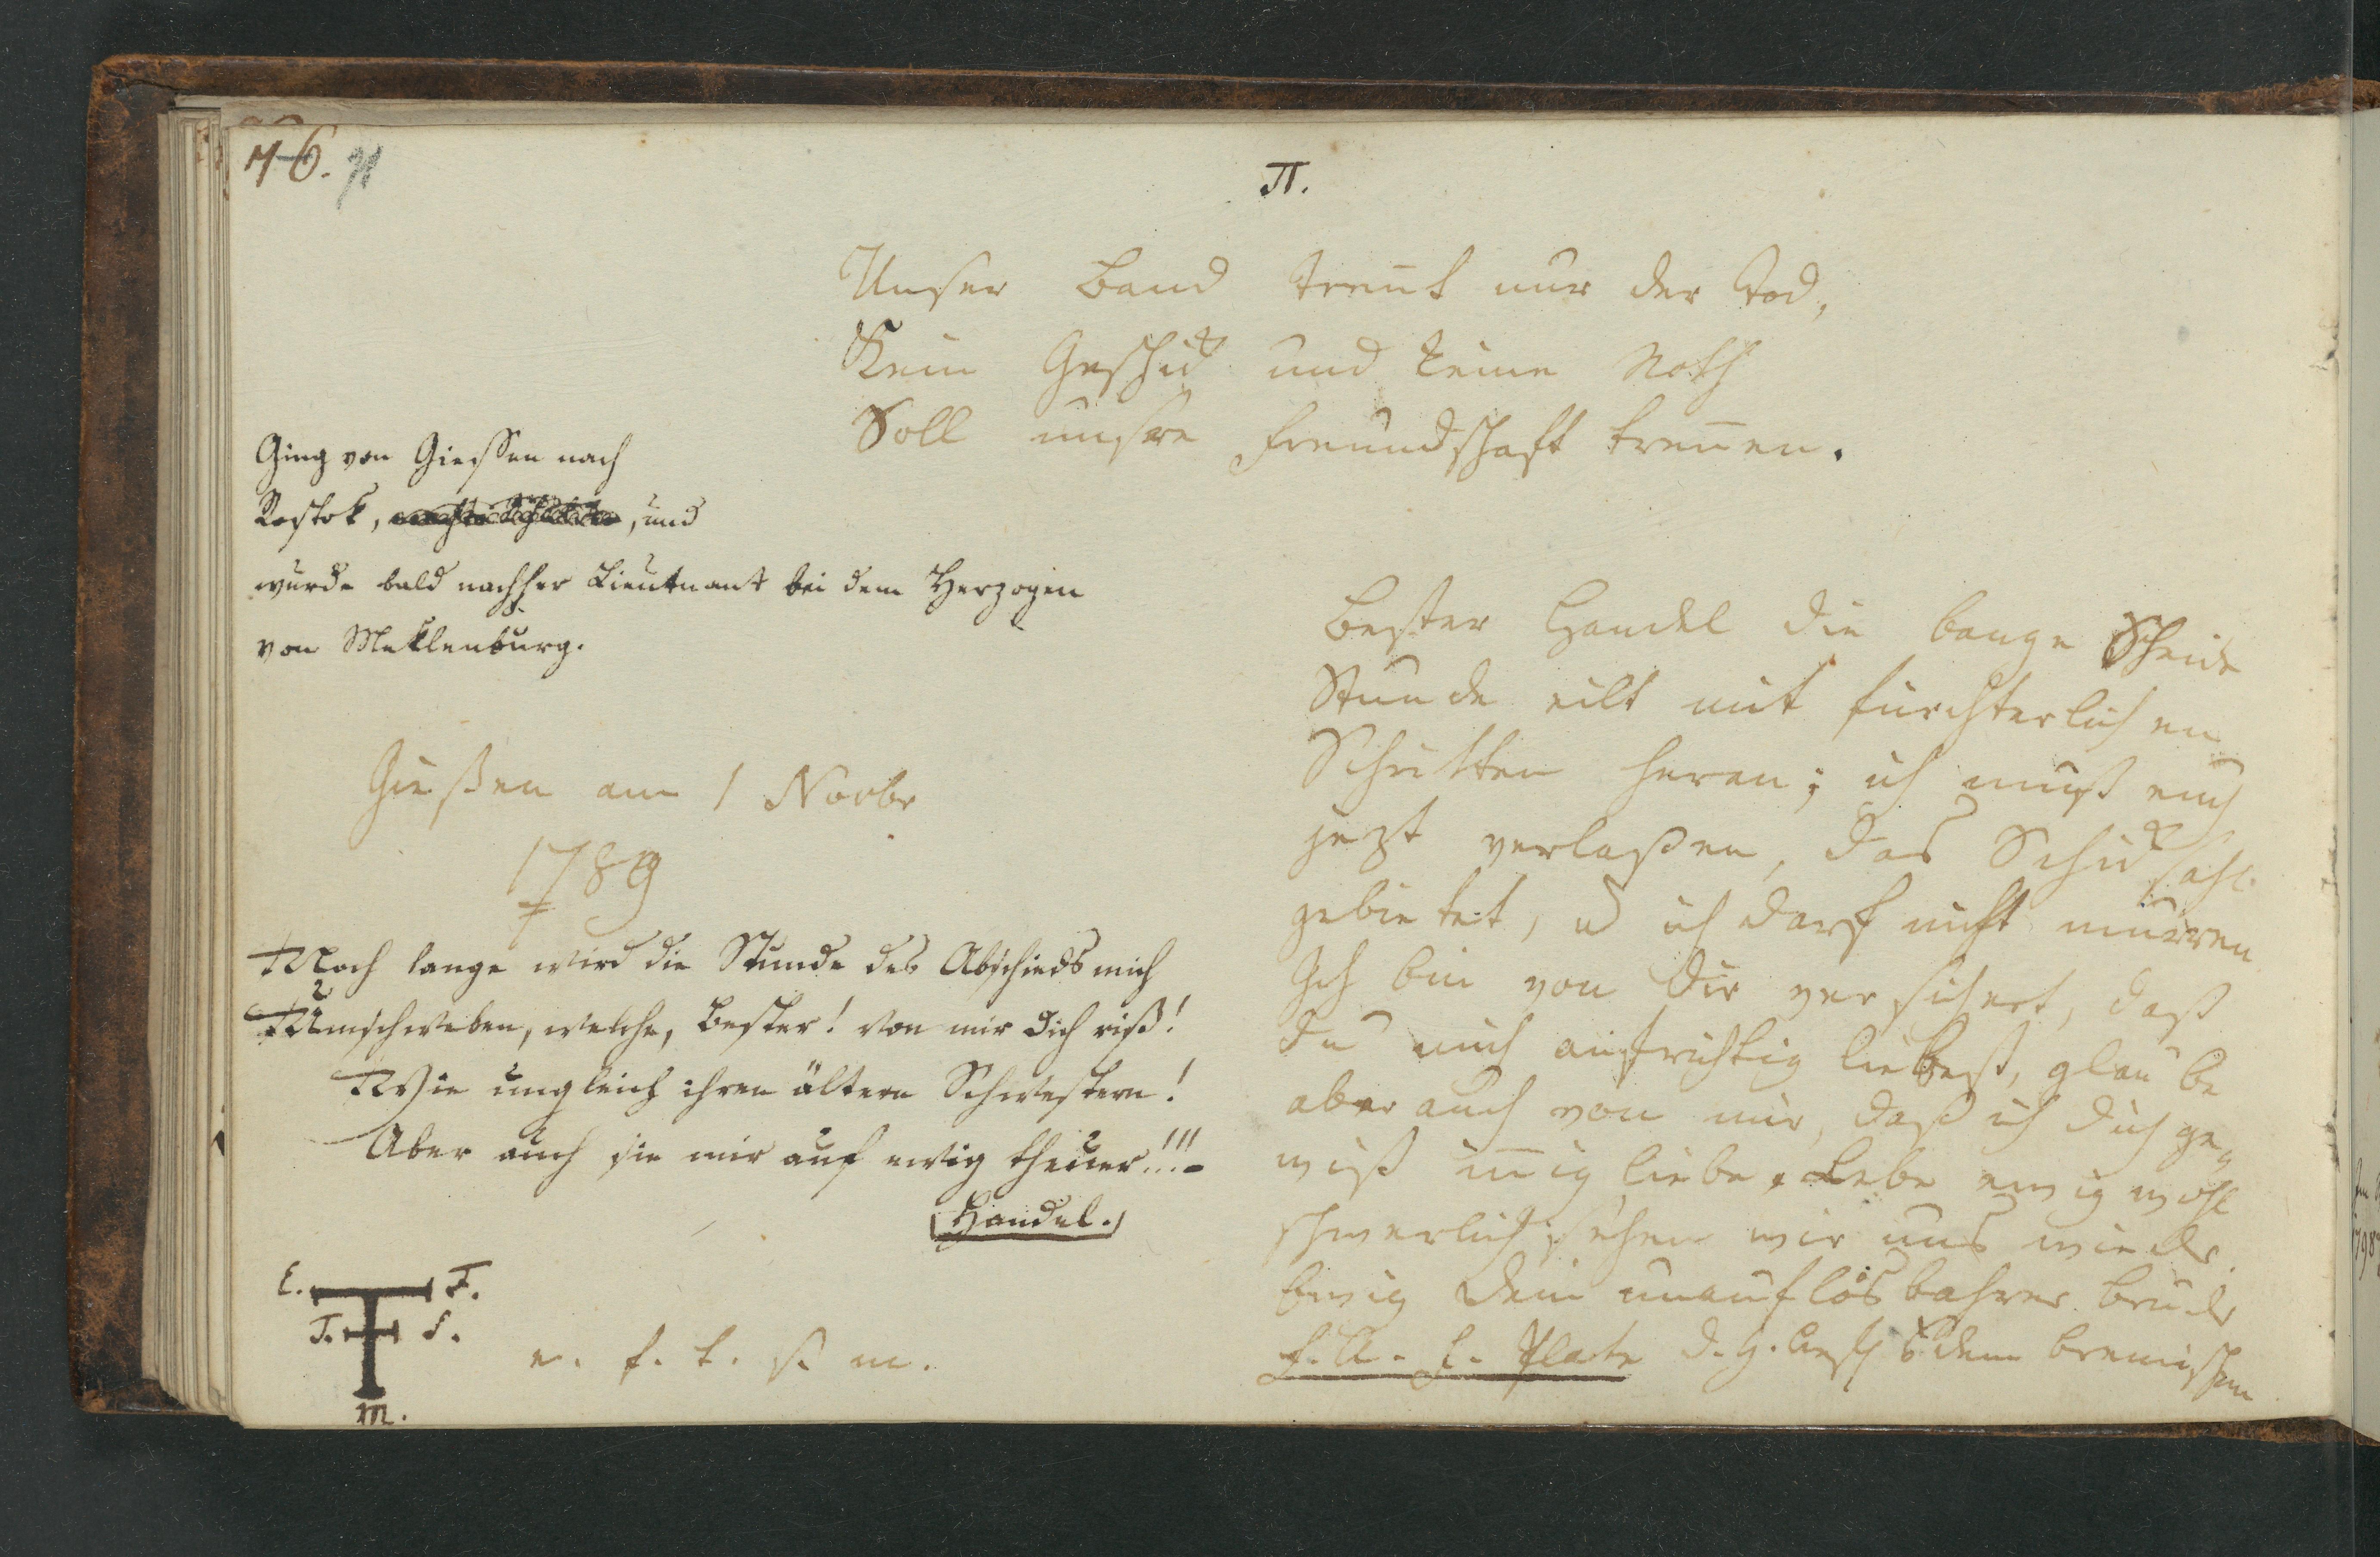 76. 71
π.
Unser Band treñt nur der Tod,
Kein Geschick und keine Noth
Soll unsre Freundschaft treñen.
Ging von Giessen nach
Rostok, und
wurde bald nachher Lieutnant bei dem Herzogen
von Meklenburg.
Gießen am 1 Novbr
1789
Noch lange wird die Stunde des Abschieds mich
Umschweben, welche, Bester! von mir Dich riß!
Wie ungleich ihren ältern Schwestern!
Aber auch sie mir auf ewig theuer!!!-
Handel.
E. F.
T. S.
M.
e. f. t. s. m.
Bester Handel die bange Scheide
Stunde eilt mit fürchterlichen
Schritten heran; ich muß euch
jezt verlaßen, das Schicksahl
gebietet, u ich darf nicht murren
Ich bin von Dir versichert, daß
Du mich aufrichtig liebest, glaube
aber auch von mir, daß ich Dich ge¬
wiß iñig liebe. Lebe ewig wohl
schwerlich sehen wir uns wieder.
Ewig Dein unauflösbahrer Bruder
Plate d. G. Befl. dem Bremischen